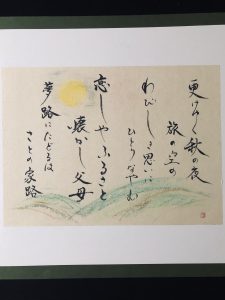 更けゆく秋の夜
旅の空の
わびしき思いに
ひとりなやむ
恋しやふるさと
懐かし父母
夢路にたどるは
さとの家路